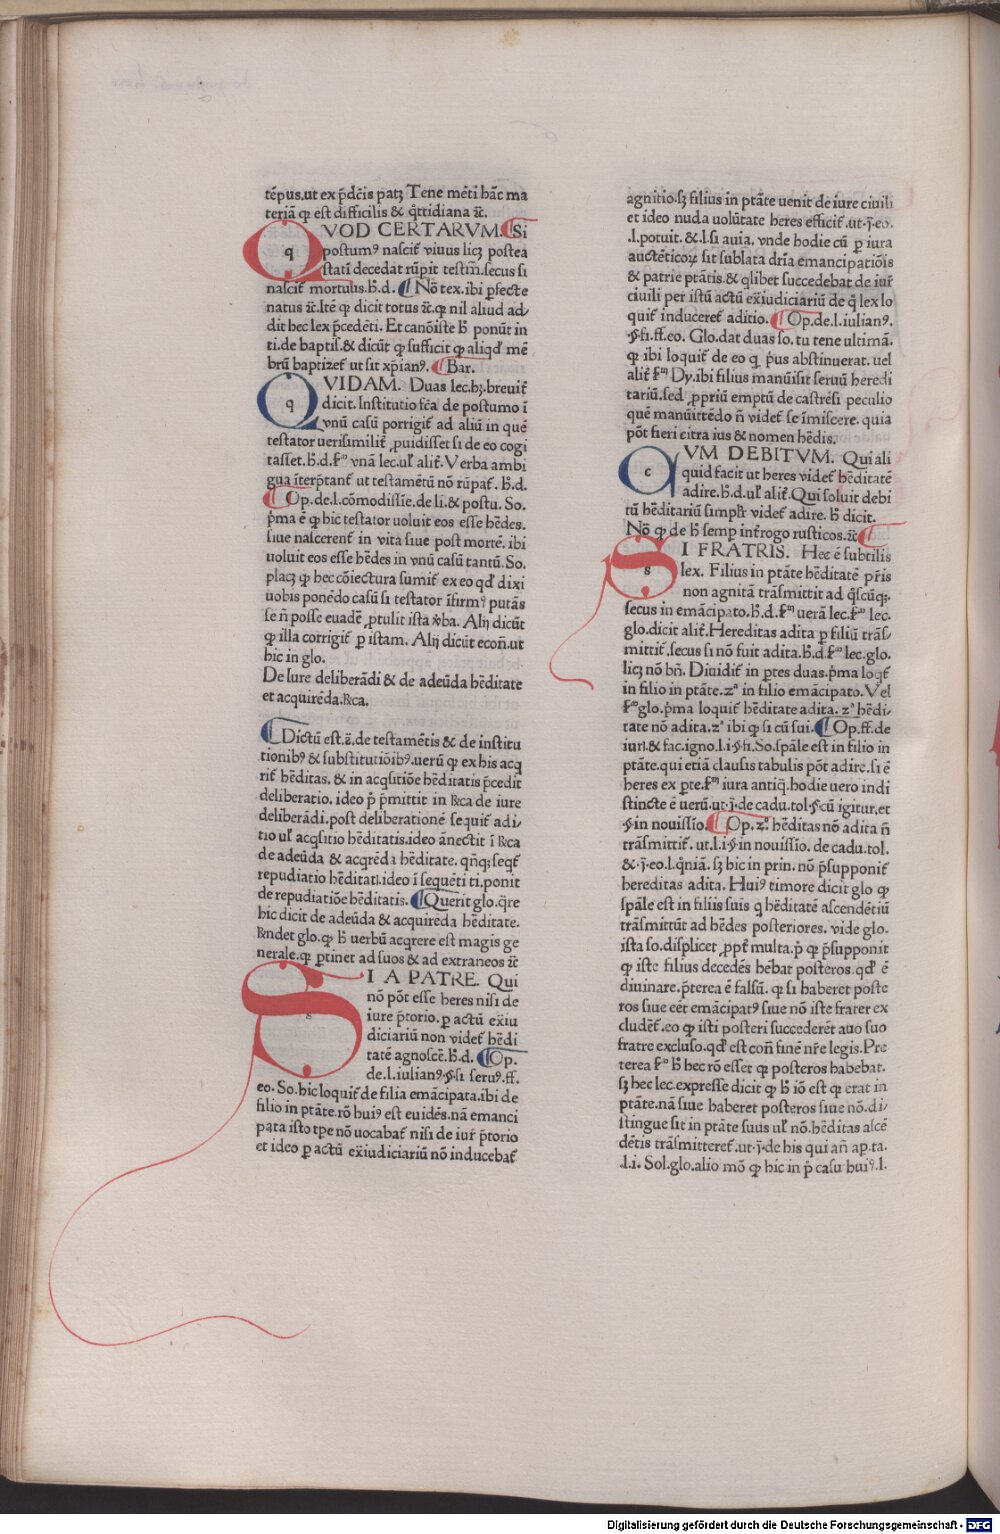 tēpus.ut ex p̄dēis patꝫ Tene mēti hāc ma
teriā ꝙ est difficilis & q̄ttidiana ⁊c̄.
QVOD CERTARVM. Si
postumꝰ nascit᷑ viuus licꝫ postea
statī decedat rūpit testm̄.secus si
nascit᷑ mortuus.h̄.d. Nō tex.ibi ꝑfecte
natus ⁊c̄.Itē ꝙ dicit totus ⁊c̄.ꝙ nil aliud ad/
dit hec lex p̄cedēti. Et canōiste h̄ ponūt in
ti.de baptis.& dicūt ꝙ sufficit ꝙ aliqd̄ mē
brū baptizet᷑ ut sit xp̄ianꝰ. Bar.
QVIDAM. Duas lec.hꝫ.breuit᷑
dicit. Institutio fc̄a de postumo ī
vnū casū porrigit᷑ ad aliū in quē
testator uerisimilit᷑ ꝓuidisset si de eo cogi
tasset.h̄.d.ẜm vnā lec.ul̓ alit᷑. Verba ambi
gua īterp̄tant᷑ ut testamētū nō rūpat᷑. h̄.d.
Op.de.l.cōmodissīe.de li.& postu. So.
p̄ma ē ꝙ hic testator uoluit eos esse hēdes.
siue nascerent᷑ in vita siue post mortē. ibi
uoluit eos esse hēdes in vnū casū tantū. So.
placꝫ ꝙ hec cōiectura sumit᷑ ex eo qd̓ dixi
uobis ponēdo casū si testator īfirmꝰ putās
se n̄ posse euadē ꝓtulit ista v̓ba. Alij dicūt
ꝙ illa corrigit᷑ ꝑ istam. Alij dicūt econ̄.ut
hic in glo.
De iure deliberādi & de adeūda hēditate
et acquirēda.℞ca.
Dictū est.s̄.de testamētis & de institu
tionibꝰ & substitutiōibꝰ.uerū ꝙ ex his acq
rit᷑ hēditas. & in acqsitiōe hēditatis p̄cedit
deliberatio. ideo p̓ p̄mittit in ℞ca de iure
deliberādi.post deliberationē sequit᷑ adi/
tio ul̓ acqsitio hēditatis.ideo ānectit ī ℞ca
de adeūda & acqrēda hēditate. qn̄qꝫ seqt᷑
repudiatio hēditati.ideo ī sequēti ti.ponit
de repudiatiōe hēditatis. Querit glo.q̄re
hic dicit de adeūda & acquirēda hēditate.
℞ndet glo.ꝙ h̄ uerbū acqrere est magis ge
nerale.ꝙ ꝑtinet ad suos & ad extraneos ⁊c̄
SI A PATRE. Qui
nō pōt esse heres nisi de
iure p̄torio. ꝑ actū exīu
diciariū non videt᷑ hēdi
tatē agnoscē.h̄.d. Op.
de.l.iulianꝰ.§.si seruꝰ.ff.
eo. So.hic loquit᷑ de filia emācipata.ibi de
filio in ptāte.rō huiꝰ est euidēs.nā emanci
pata isto tꝑe nō uocabat᷑ nisi de iur̓ p̄torio
et ideo ꝑ actū exīudiciariū nō inducebat᷑
agnitio.sꝫ filius in ptāte uenit de iure ciuili
et ideo nuda uolūtate heres efficit᷑.ut.j̄.eo.
.l.potuit. & .l.si auia. vnde hodie cū ꝑ iura
auctēticoꝝ sit sublata dr̄ia emancipatiōis
& patrie ptātis.& qlibet succedebat de iur̓
ciuili per istū actū exīudiciariū de q̄ lex lo
quit᷑ induceret᷑ aditio. Op.de.l.iulianꝰ.
§.fi.ff.eo. Glo.dat duas so. tu tene ultimā.
ꝙ ibi loquit᷑ de eo q p̓us abstinuerat. uel
alit᷑ ẜm Dy.ibi filius manūisit seruū heredi
tariū.sed ꝓpriū emptū de castrēsi peculio
quē manūittēdo n̄ videt᷑ se īmiscere. quia
pōt fieri citra ius & nomen hēdis.
CVM DEBITVM. Qui ali
quid facit ut heres videt᷑ hēditatē
adire.h̄.d.ul̓ alit᷑. Qui soluit debi
tū hēditariū simplr̓ videt᷑ adire. h̄ dicit.
Nō ꝙ de h̄ semp int̓rogo rusticos.⁊c̄
SI FRATRIS. Hec ē subtilis
lex. Filius in ptāte hēditatē pr̄is
non agnitā trāsmittit ad q̄scūqꝫ.
secus in emācipato.h̄.d.ẜm uerā lec.ẜm lec.
glo.dicit alit᷑. Hereditas adita ꝑ filiū trās/
mittit᷑.secus si nō fuit adita.h̄.d.ẜm lec.glo.
licꝫ nō bn̄. Diuidit᷑ in ꝑtes duas.p̄ma loqt᷑
in filio in ptāte.zᵃ in filio emācipato. Vel
ẜm glo.p̄ma loquit᷑ hēditate adita. zᵃ hēdi/
tate nō adita.zᵃ ibi ꝙ si cū sui. Op.ff.de
iuri.& fac.igno.l.i.§.fi. So.spāle est in filio in
ptāte.qui etiā clausis tabulis pōt adire.si ē
heres ex ꝑte.ẜm iura antiq̄.hodie uero indi
stincte ē uerū.ut.j̄.de cadu.tol.§.cū igitur.et
§.in nouissīo. Op.zᵒ. hēditas nō adita n̄
trāsmittit᷑. ut.l.i.§.in nouissīo. de cadu.tol.
& .j̄.eo.l.q̄niā. sꝫ hic in prin. nō p̄supponit᷑
hereditas adita. Huiꝰ timore dicit glo ꝙ
spāle est in filiis suis q hēditatē ascendētiū
trāsmittūt ad hēdes posteriores. vide glo.
ista so.displicet ꝓpt᷑ multa.p̓ ꝙ p̄supponit
ꝙ iste filius decedēs hēbat posteros.qd̓ ē
diuinare.p̄terea ē falsū. ꝙ si haberet poste
ros siue eēt emācipatꝰ siue nō iste frater ex
cludēt᷑.eo ꝙ isti posteri succederēt auo suo
fratre excluso.qd̓ est con̄ finē nr̄e legis. Pre
terea ẜm h̄ hec rō esset ꝙ posteros habebat.
sꝫ hec lec.expresse dicit ꝙ h̄ iō est ꝙ erat in
ptāte.nā siue haberet posteros siue nō.di/
stingue sit in ptāte suus ul̓ nō.hēditas ascē
dētis trāsmitteret᷑.ut.j̄.de his qui an̄ ap.ta.
.l.i. Sol.glo.alio mō ꝙ hic in p̓ casu huiꝰ.l.
Digitalisierung gefördert durch die Deutsche Forschungsgemeinschaft - DFG